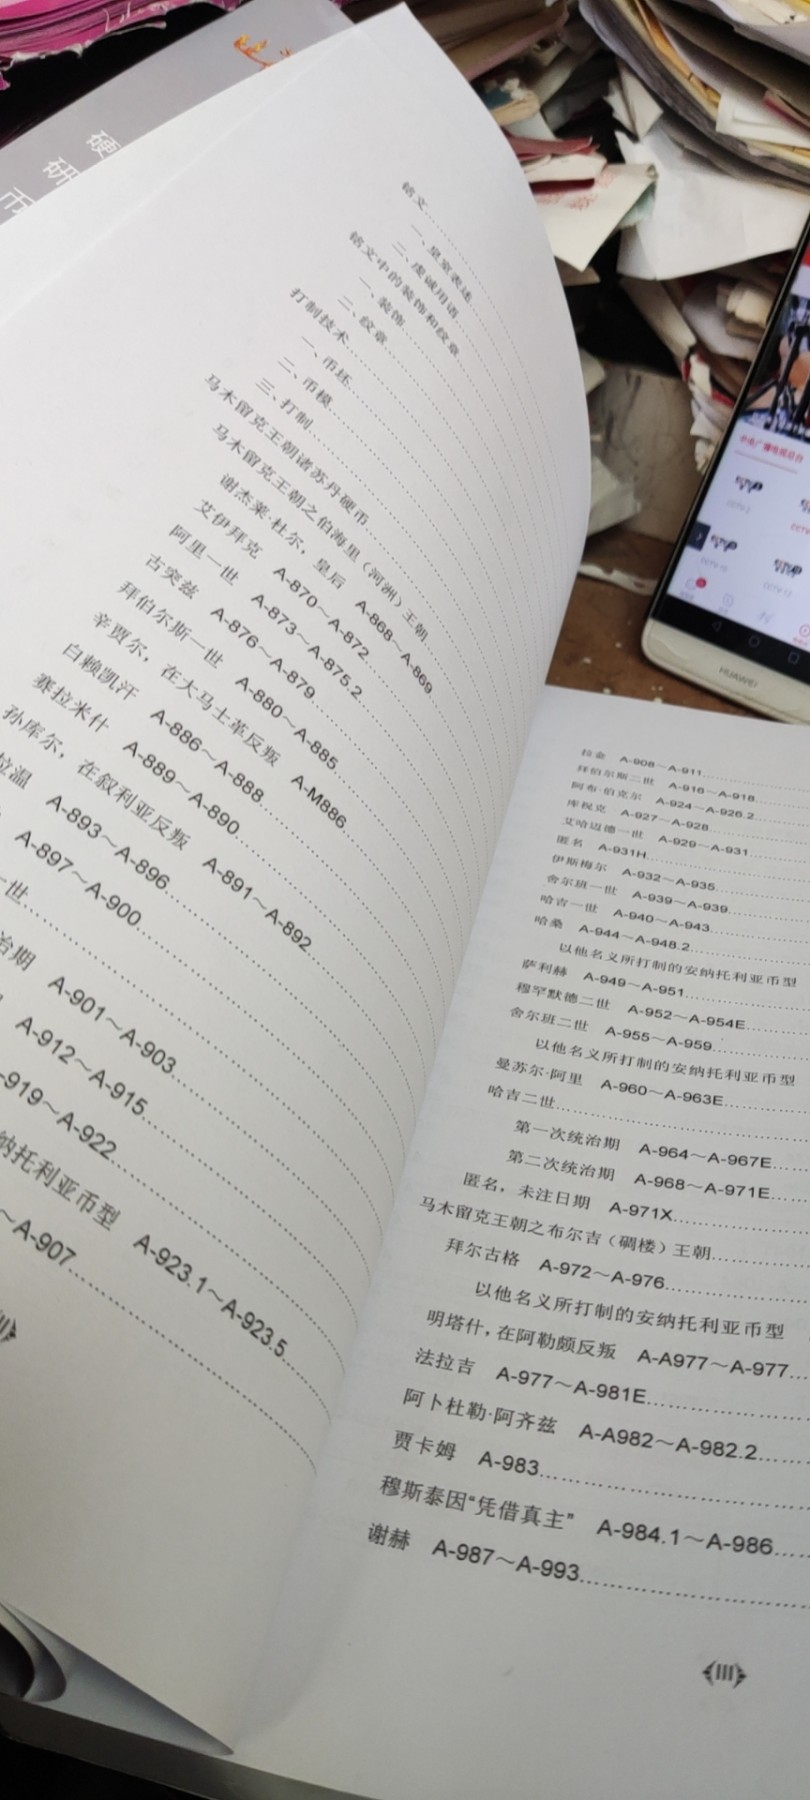 硬
研
币
铭文
一、皇室表述
二、虔诚用语
铭文中的装饰和纹章
一、装饰
二、纹章
打制技术
一、币坯
二、币模
三、打制
马木留克王朝诸苏丹硬币
马木留克王朝之伯海里（河洲）王朝
谢杰莱·杜尔，皇后 A-868～A-869
艾伊拜克 A-870～A-872
阿里一世 A-873～A-875.2
古突兹 A-876～A-879
拜伯尔斯一世 A-880～A-885
辛贾尔，在大马士革反叛 A-M886
白赖凯汗 A-886～A-888
赛拉米什 A-889～A-890
孙库尔，在叙利亚反叛 A-891～A-892
拉温 A-893～A-896
A-897～A-900
一世
治期 A-901～A-903
A-912～A-915
-919～A-922
纳托利亚币型 A-923.1～A-923.5
～A-907
拉金 A-908～A-911
拜伯尔斯二世 A-916～A-918
阿布·伯克尔 A-924～A-926.2
库祝克 A-927～A-928
艾哈迈德一世 A-929～A-931
匿名 A-931H
伊斯梅尔 A-932～A-935
舍尔班一世 A-939～A-939
哈吉一世 A-940～A-943
哈桑 A-944～A-948.2
以他名义所打制的安纳托利亚币型
萨利赫 A-949～A-951
穆罕默德二世 A-952～A-954E
舍尔班二世 A-955～A-959
以他名义所打制的安纳托利亚币型
曼苏尔·阿里 A-960～A-963E
哈吉二世
第一次统治期 A-964～A-967E
第二次统治期 A-968～A-971E
匿名，未注日期 A-971X
马木留克王朝之布尔吉（碉楼）王朝
拜尔古格 A-972～A-976
以他名义所打制的安纳托利亚币型
明塔什，在阿勒颇反叛 A-A977～A-977
法拉吉 A-977～A-981E
阿卜杜勒·阿齐兹 A-A982～A-982.2
贾卡姆 A-983
穆斯泰因“凭借真主” A-984.1～A-986
谢赫 A-987～A-993
III
中央广播电视总台
HUAWEI